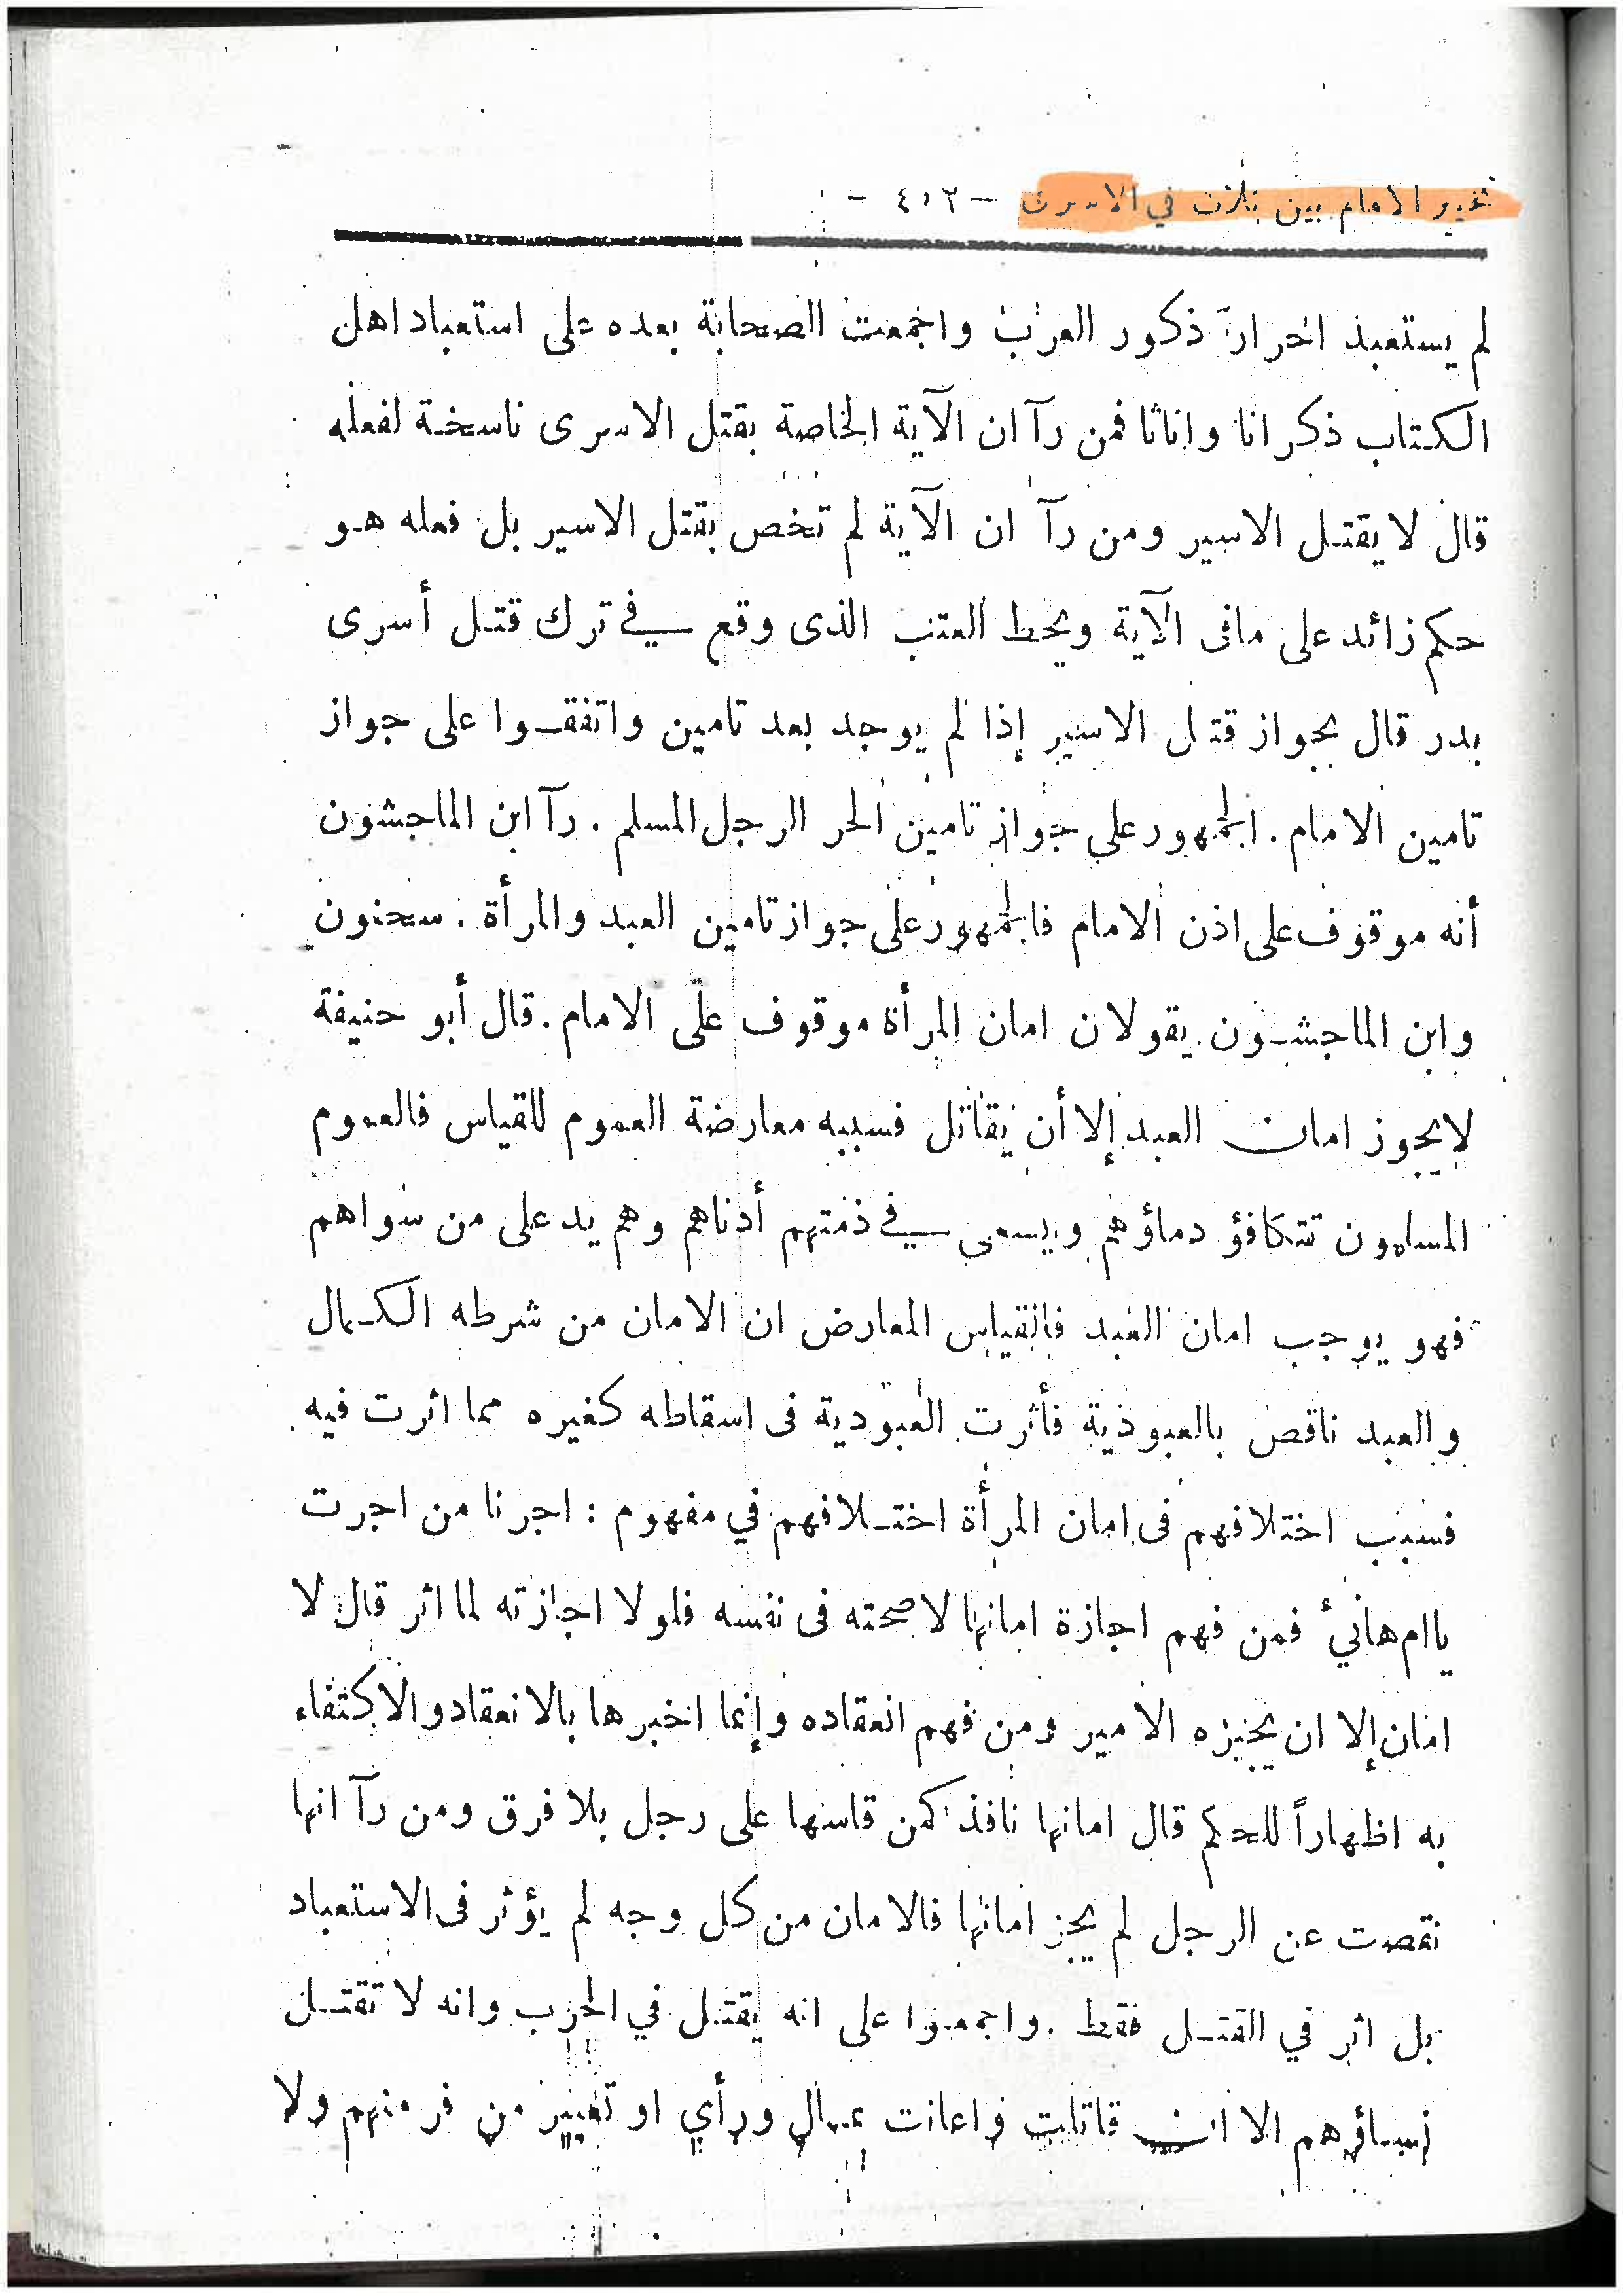 تخيير الامام بين ثلاث في الاسرى - ٤٠٢ -
لم يستعبد احرار ذكور العرب واجمعت الصحابة بعده على استعباد اهل
الكتاب ذكرانا واناثا فمن رآ ان الآية الخاصة بقتل الاسرى ناسخة لفعله
قال لا يقتل الاسير ومن رآ ان الآية لم تخص بقتل الاسير بل فعله هو
حكم زائد على مافى الآية ويحط العتب الذى وقع في ترك قتل أسرى
بدر قال بجواز قتل الاسير إذا لم يوجد بعد تامين واتفقوا على جواز
تامين الامام . الجمهور على جواز تامين الحر الرجل المسلم . رآ ابن الماجشون
أنه موقوف على اذن الامام فالجمهور على جواز تامين العبد والمرأة . سحنون
وابن الماجشون يقولان امان المرأة موقوف على الامام . قال أبو حنيفة
لايجوز امان العبد إلا أن يقاتل فسببه معارضة العموم للقياس فالعموم
المسلمون تتكافؤ دماؤهم ويسعى في ذمتهم أدناهم وهم يد على من سواهم
فهو يوجب امان العبد فالقياس المعارض ان الامان من شرطه الكمال
والعبد ناقص بالعبودية فأثرت العبودية فى اسقاطه كغيره مما اثرت فيه
فسبب اختلافهم فى امان المرأة اختلافهم في مفهوم : اجرنا من اجرت
ياام هانئ فمن فهم اجازة امانها لا صحته فى نفسه فلولا اجازته لما اثر قال لا
امان إلا ان يجيزه الامير ومن فهم انعقاده وإنما اخبرها بالانعقاد والاكتفاء
به اظهاراً للحكم قال امانها نافذ كمن قاسها على رجل بلا فرق ومن رآ انها
نقصت عن الرجل لم يجز امانها فالامان من كل وجه لم يؤثر فى الاستعباد
بل اثر في القتل فقط . واجمعوا على انه يقتل في الحرب وانه لا تقتل
نساؤهم الا ان قاتلت واعانت بمال ورأي او تغيير من فر منهم ولا